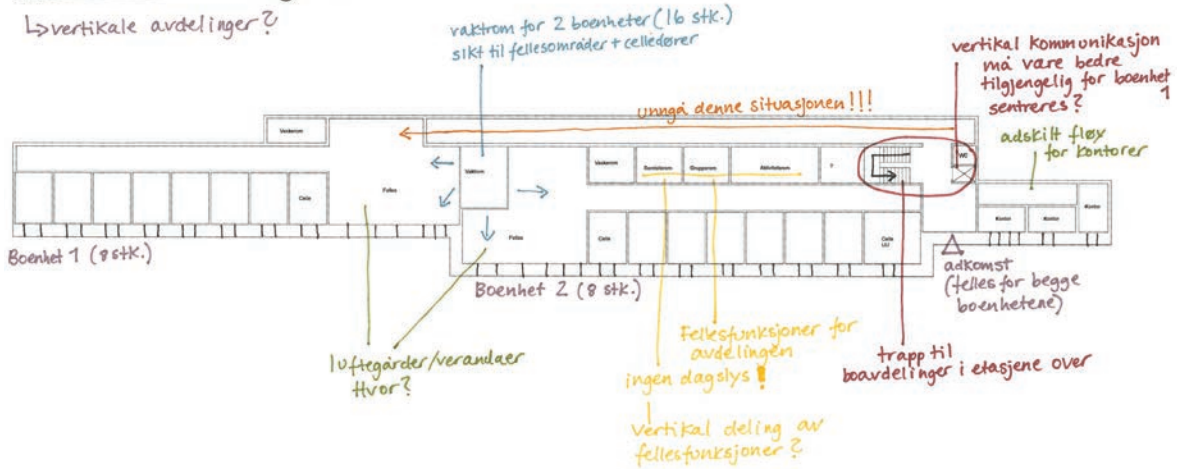 ↳vertikale avdelinger?
vaktrom for 2 boenheter (16 stk.)
sikt til fellesområder + celledører
vertikal kommunikasjon
må være bedre
tilgjengelig for boenhet 1
sentreres?
unngå denne situasjonen!!!
adskilt fløy
for kontorer
Vaskerom
Vaktrom
Vaskerom
Samtalerom
Grupperom
Aktivitetsrom
?
WC
Felles
Celle
Kontor
Kontor
Kontor
Felles
Celle
Celle
Boenhet 1 (8 stk.)
Boenhet 2 (8 stk.)
adkomst
(felles for begge
boenhetene)
luftegårder/verandaer
Hvor?
Fellesfunksjoner for
avdelingen
ingen dagslys!
vertikal deling av
fellesfunksjoner?
trapp til
boavdelinger i etasjene over